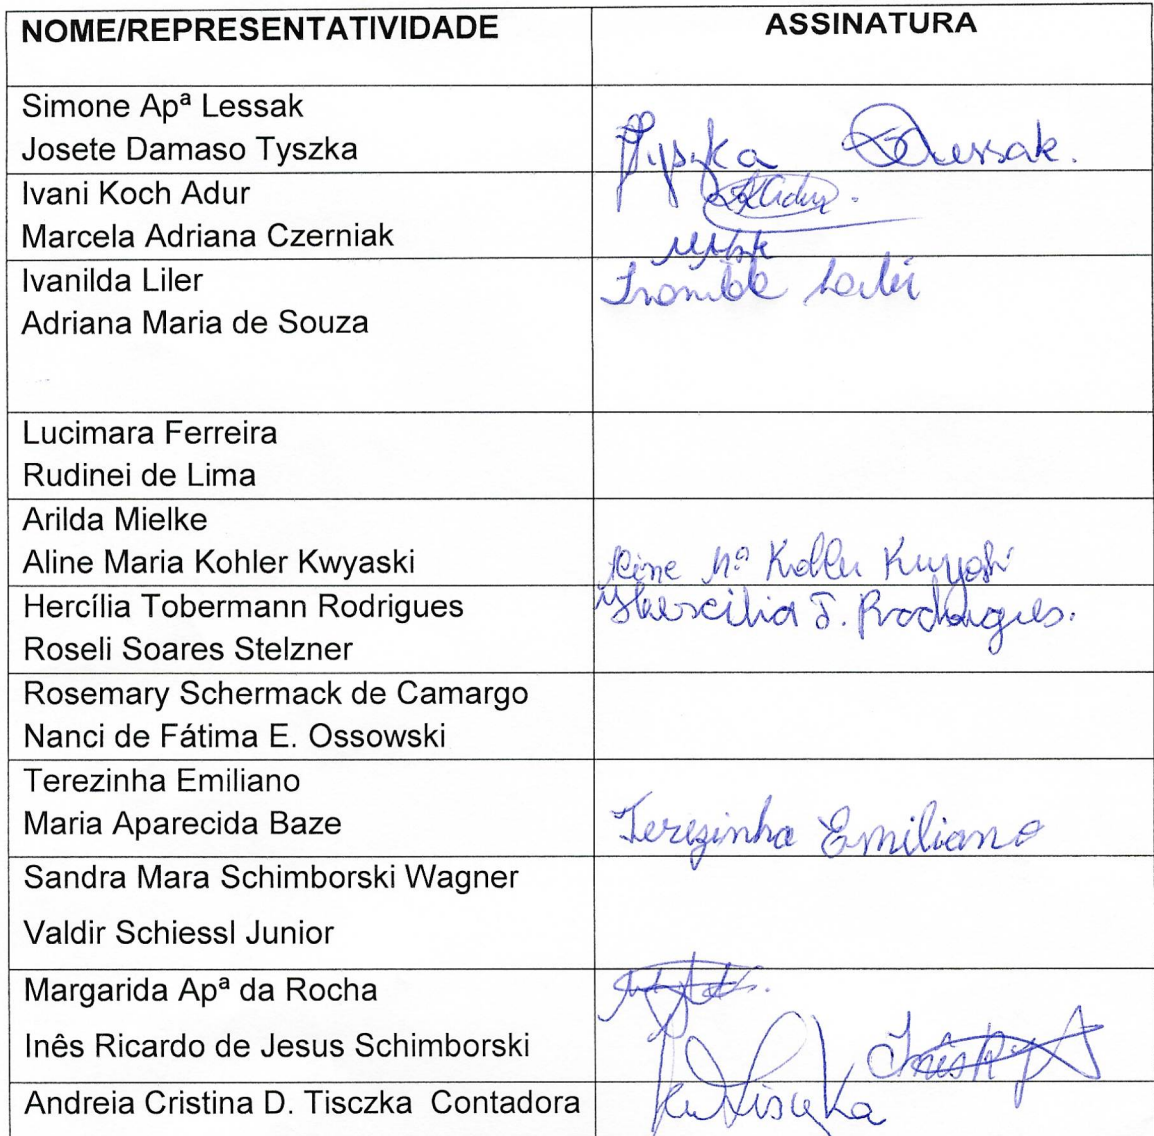 NOME/REPRESENTATIVIDADE ASSINATURA
Simone Apª Lessak
Josete Damaso Tyszka
Tyszka Lessak.
Ivani Koch Adur
Marcela Adriana Czerniak
IKAdur.
Ivanilda Liler
Adriana Maria de Souza
Lucimara Ferreira
Rudinei de Lima
Arilda Mielke
Aline Maria Kohler Kwyaski
Aline Mª Kohler Kwyaski
Hercília Tobermann Rodrigues
Hercilia T. Rodrigues.
Roseli Soares Stelzner
Rosemary Schermack de Camargo
Nanci de Fátima E. Ossowski
Terezinha Emiliano
Maria Aparecida Baze
Terezinha Emiliano
Sandra Mara Schimborski Wagner
Valdir Schiessl Junior
Margarida Apª da Rocha
Inês Ricardo de Jesus Schimborski
Andreia Cristina D. Tisczka Contadora